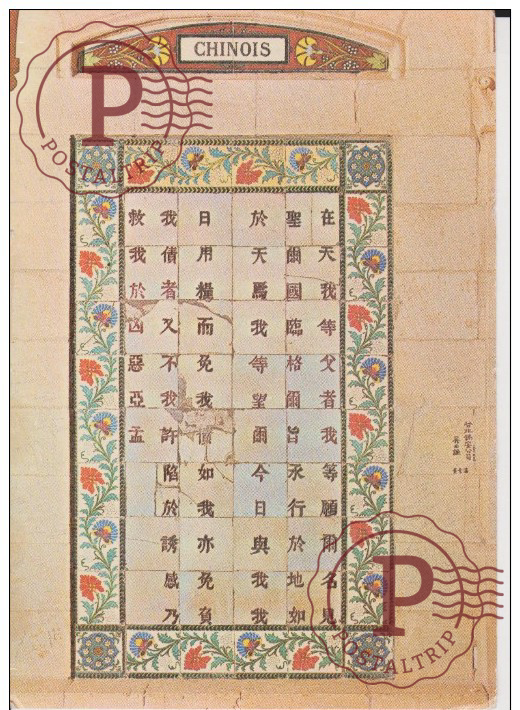 CHINOIS
在天我等父者我等願爾名見
聖爾國臨格爾旨承行於地如
於天焉我等望爾今日與我我
日用糧而免我債如我亦免負
我債者又不我許陷於誘感乃
救我於凶惡亞孟
P
POSTALTRIP
P
POSTALTRIP